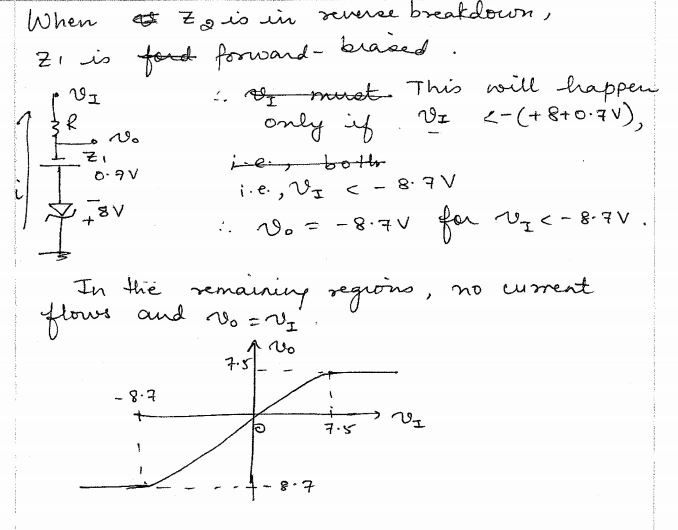 When Z2 is in reverse breakdown,
Z1 is forward-biased.
∴ This will happen
only if vI < -(+8+0.7V),
i.e., vI < -8.7V
∴ vo = -8.7V for vI < -8.7V.
vI
R
vo
Z1
0.7V
i
-
+ 8V
In the remaining regions, no current
flows and vo = vI.
vo
7.5
-8.7
0
7.5
vI
-8.7